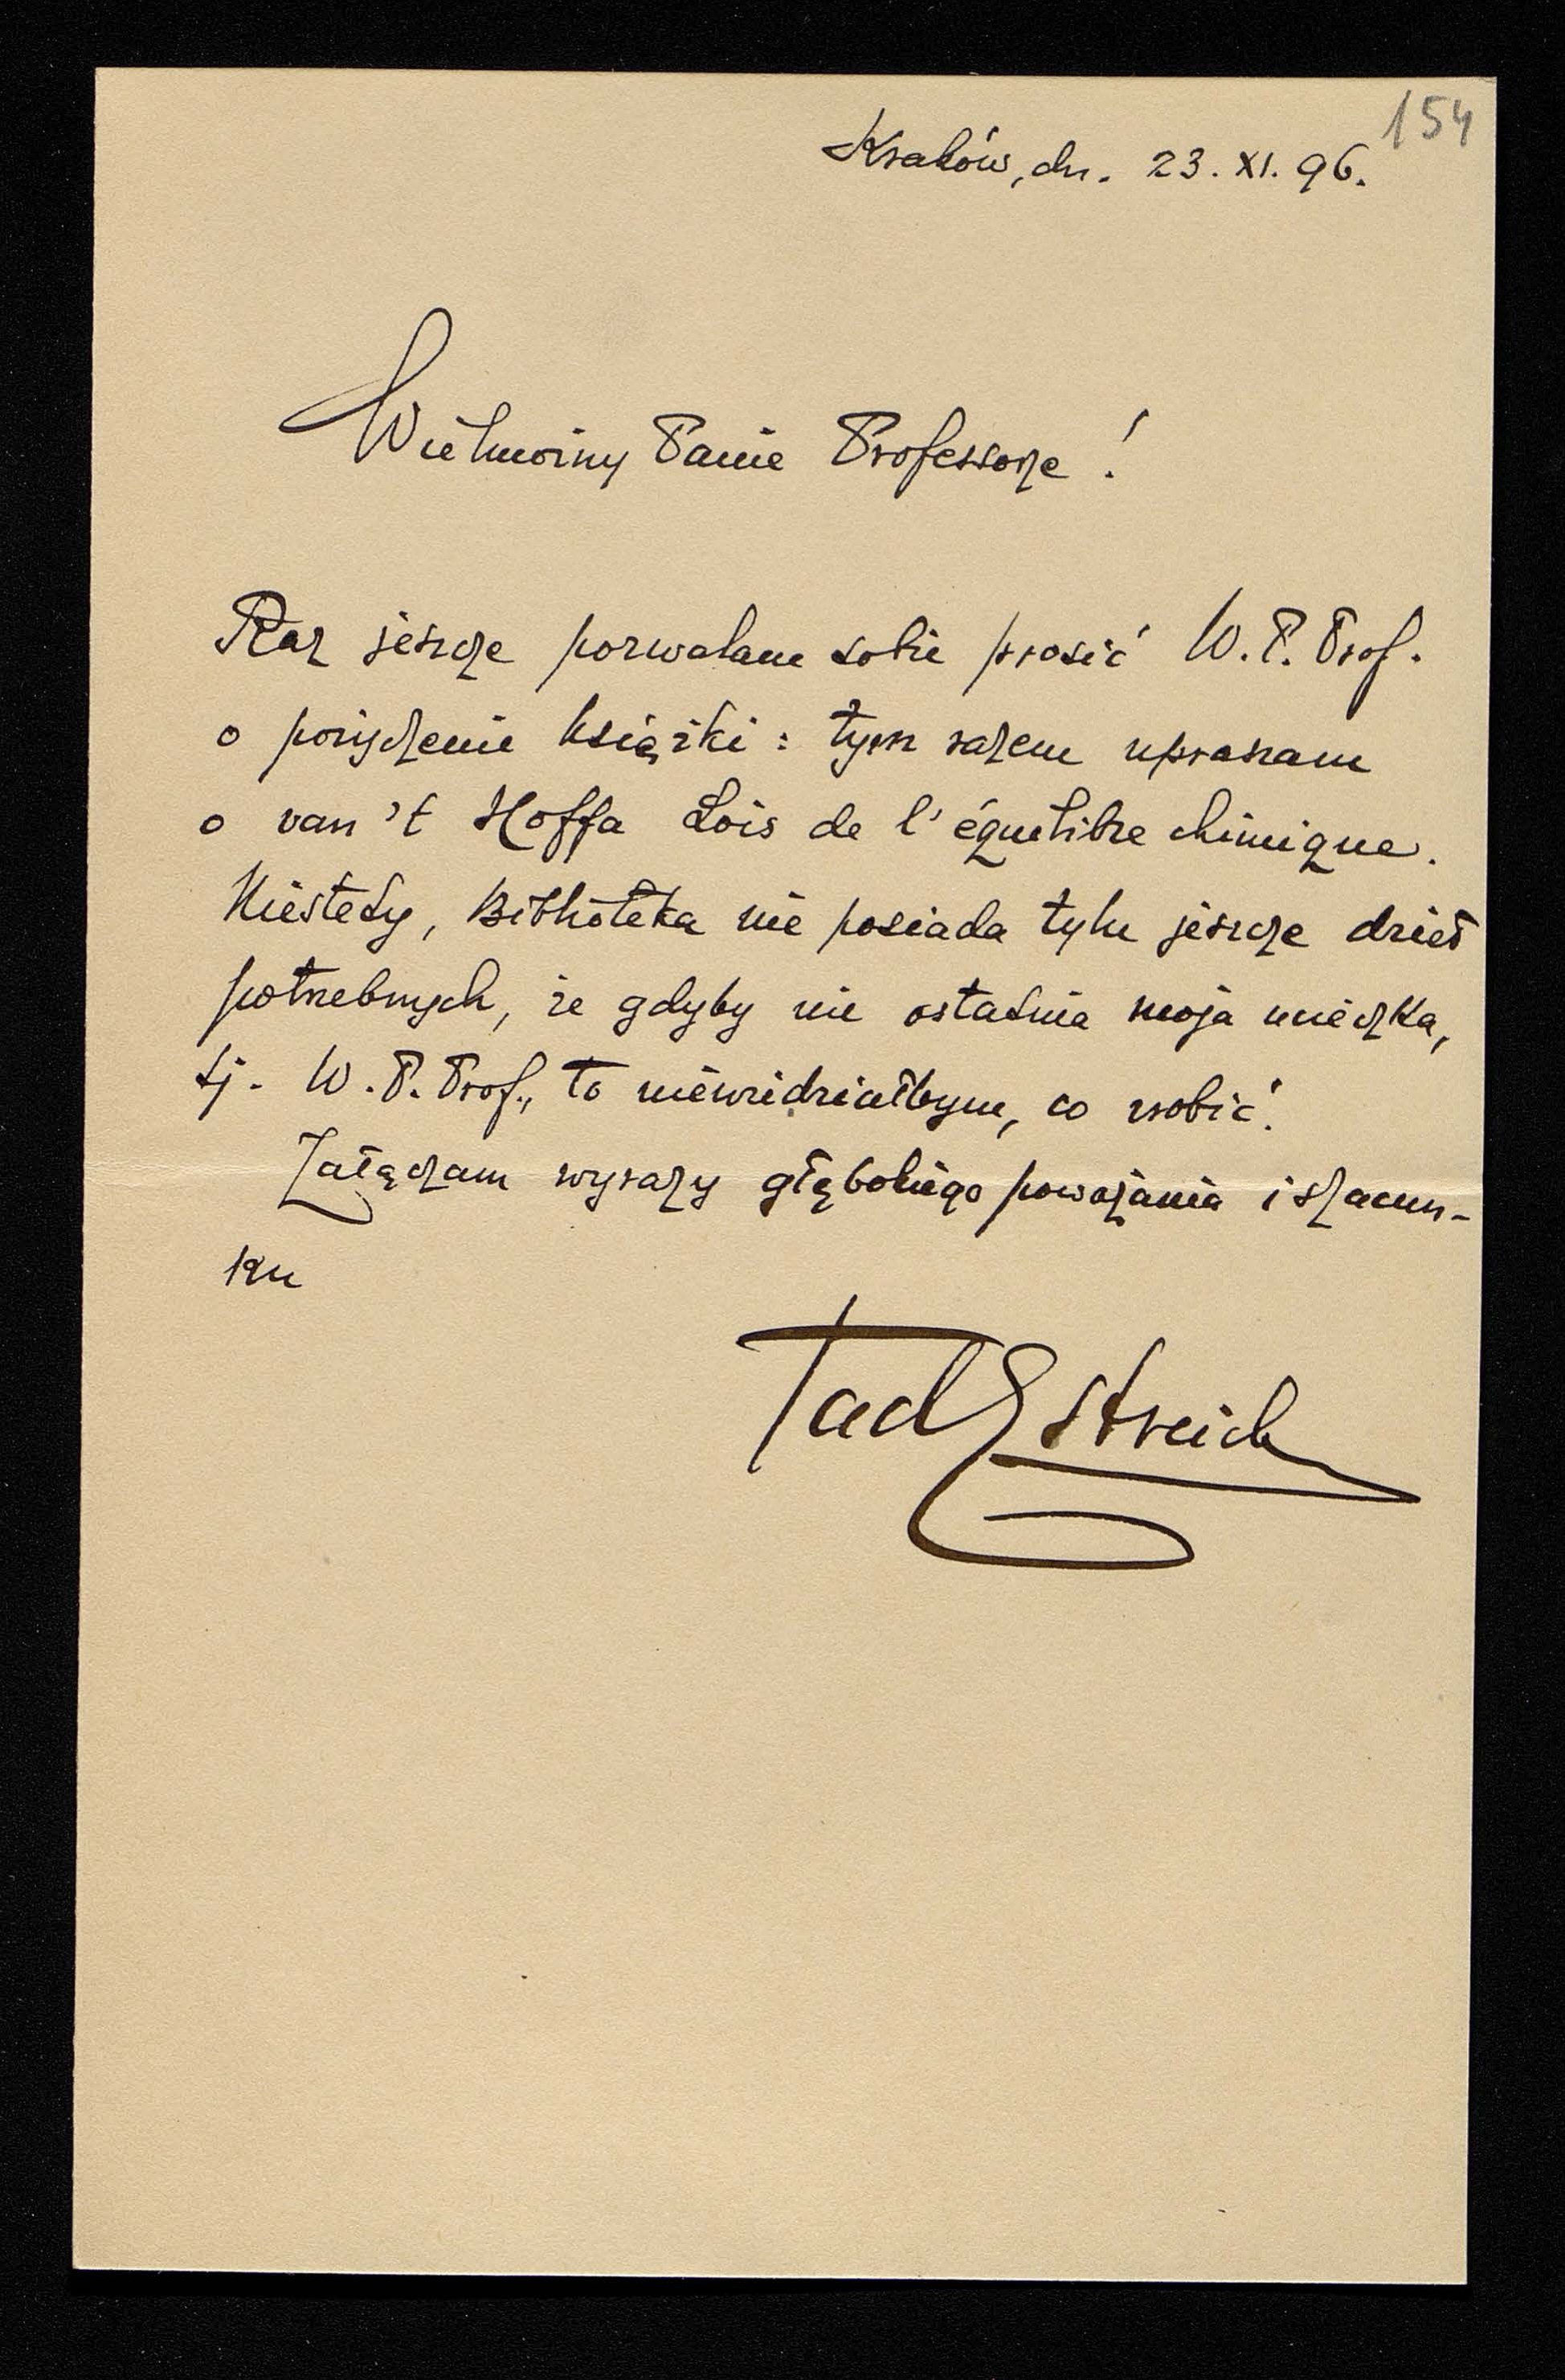 154
Kraków, dn. 23. XI. 96.
Wielmożny Panie Professorze!
Raz jeszcze pozwalam sobie prosić W. P. Prof.
o pożyczenie książki: tym razem upraszam
o van 't Hoffa Lois de l'équilibre chimique.
Niestety, Biblioteka nie posiada tylu jeszcze dzieł
potrzebnych, że gdyby nie ostatnia moja ucieczka,
tj. W. P. Prof., to niewiedziałbym, co robić.
Załączam wyrazy głębokiego poważania i szacun-
ku
Tad Estreich